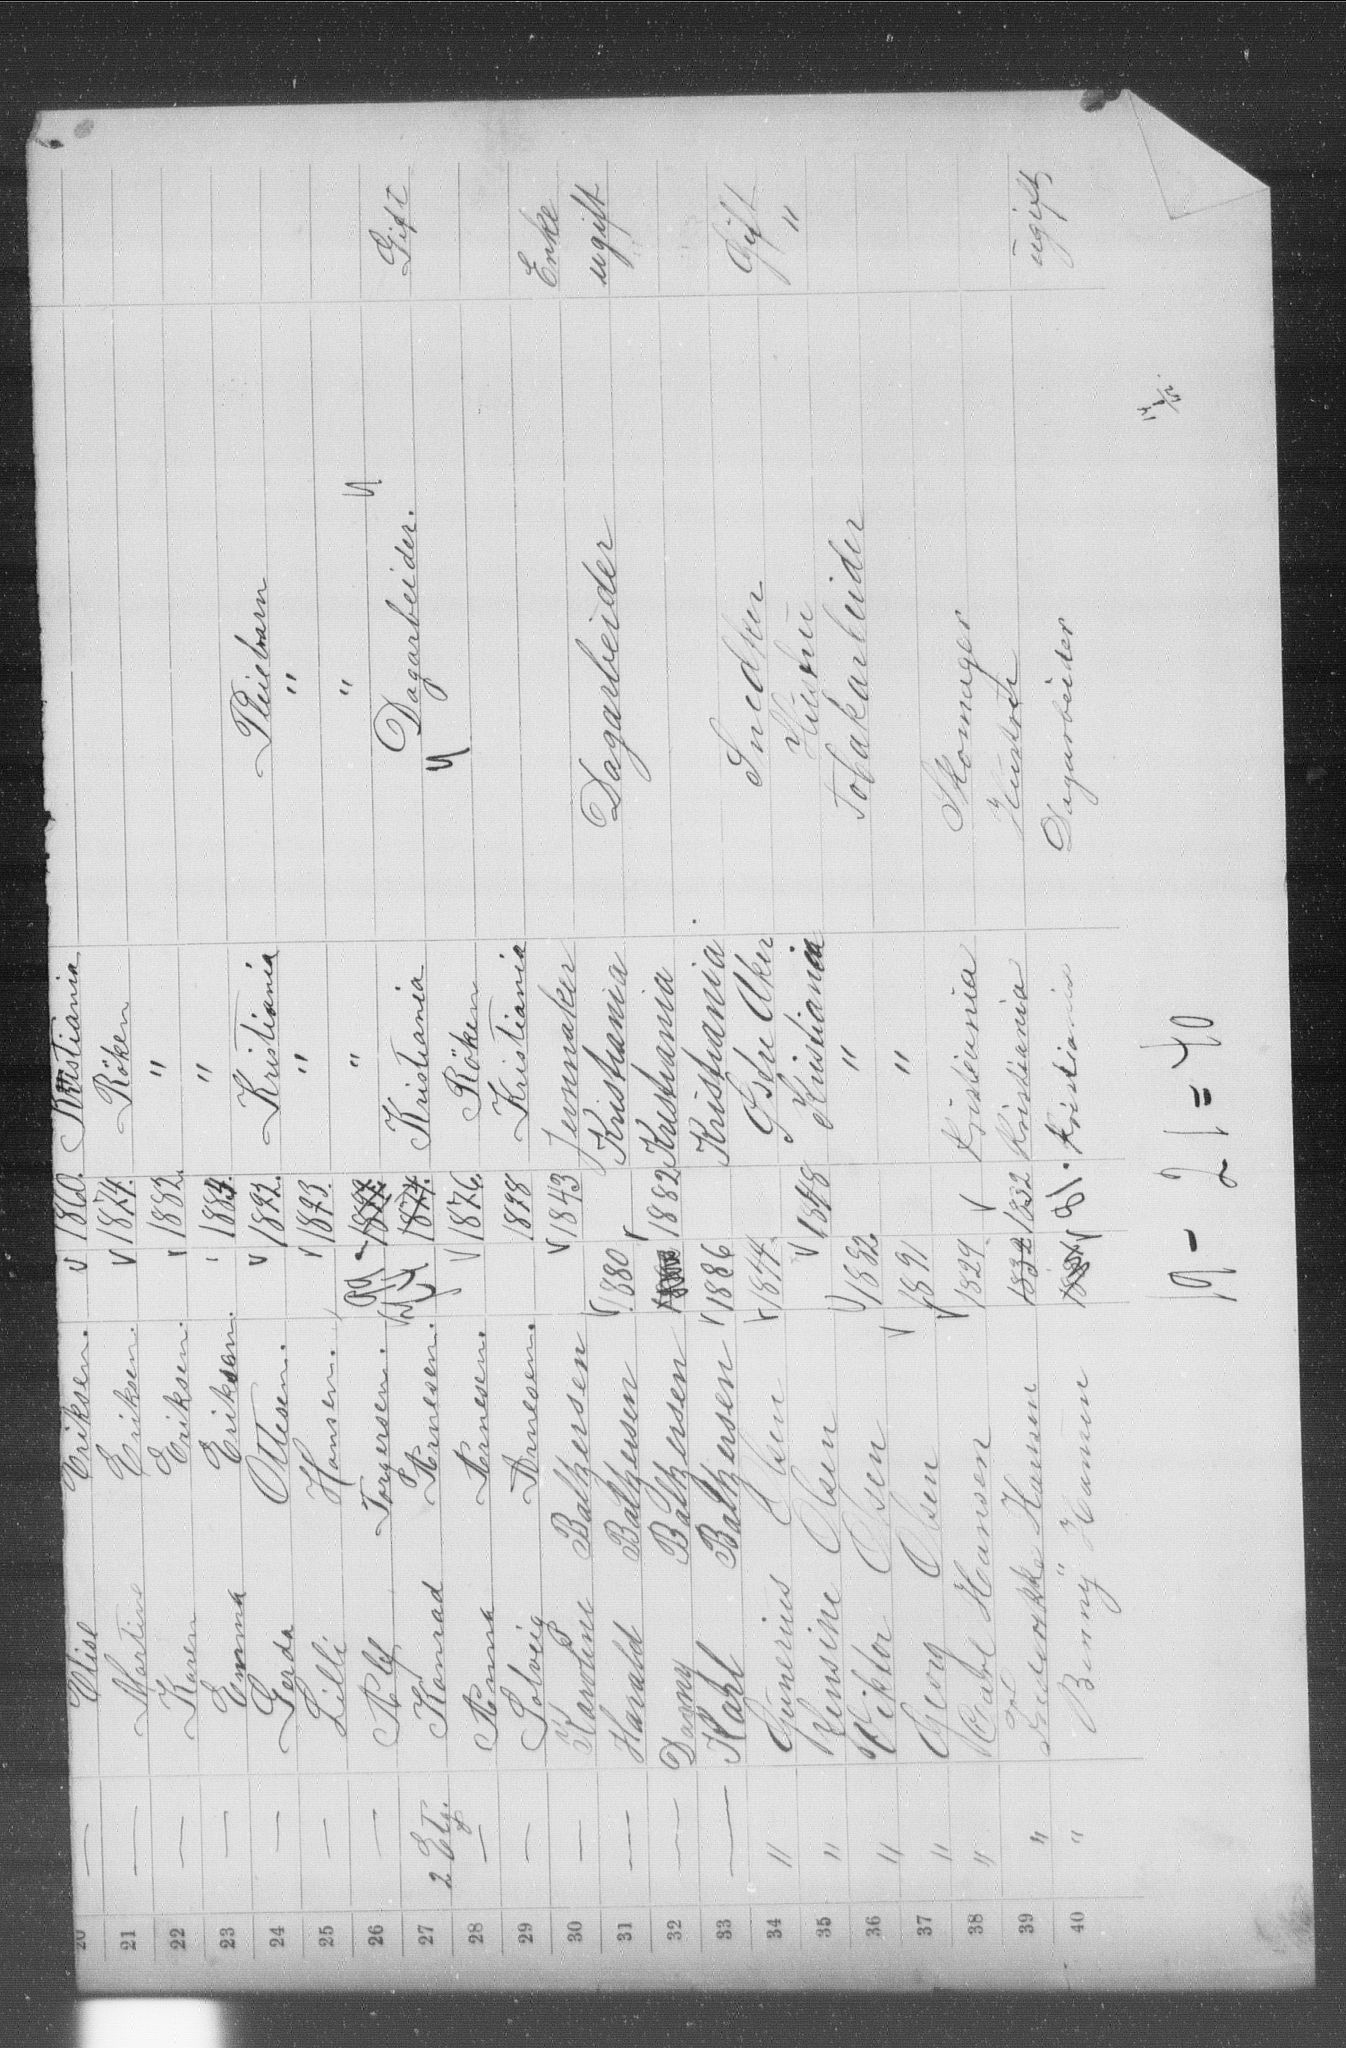 20 — Elise Eriksen. 1860. Kristiania
21 — Martine Eriksen. 1874. Röken
22 — Karen Eriksen. 1882. "
23 — Emma Eriksen. 1884. "
24 — Gerda Ottesen. 1892. Kristiania Pleiebarn
25 — Lilli Hansen. 1893. " "
26 — Alf Torgersen. 99 " "
27 2 Etg. Konrad Arnesen. 74 Kristiania Dagarbeider. Gift
28 — Anna Arnesen. 1876. Röken
29 — Solveig Arnesen. 1898 Kristiania
30 — Karoline Baltzersen 1843 Jevnaker Enke
31 — Harald Baltzersen 1880 Kristiania Dagarbeider ugift
32 — Dagny Baltzersen 1882 Kristiania
33 — Karl Baltzersen 1886 Kristiania.
34 " Gunerius Olsen 1844 Aker Snedker Gift
35 " Olsen 1848 Kristiania Hustru "
36 " Viktor Olsen 1882 " Tobakarbeider
37 " Georg Olsen 1891 "
38 " Karl Hansen 1829 Kristiania Skomager
39 " Hansen 1832 1832 Kristiania Hustru
40 " Hansen 81. Kristiania Dagarbeider ugift
19 - 21 = 40